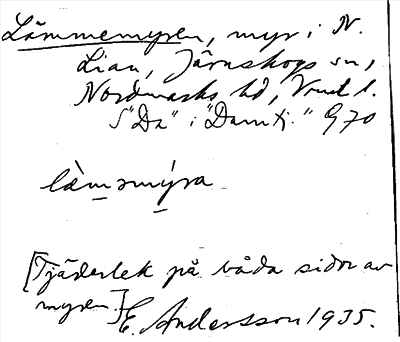 Lämmemyren, myr i N.
Lian, Järnskogs sn,
Nordmarks hd, Vrml.
S "Da" i "Damtj." G70
làməmýra
[Tjäderlek på båda sidor av
myren.] E. Andersson 1935.